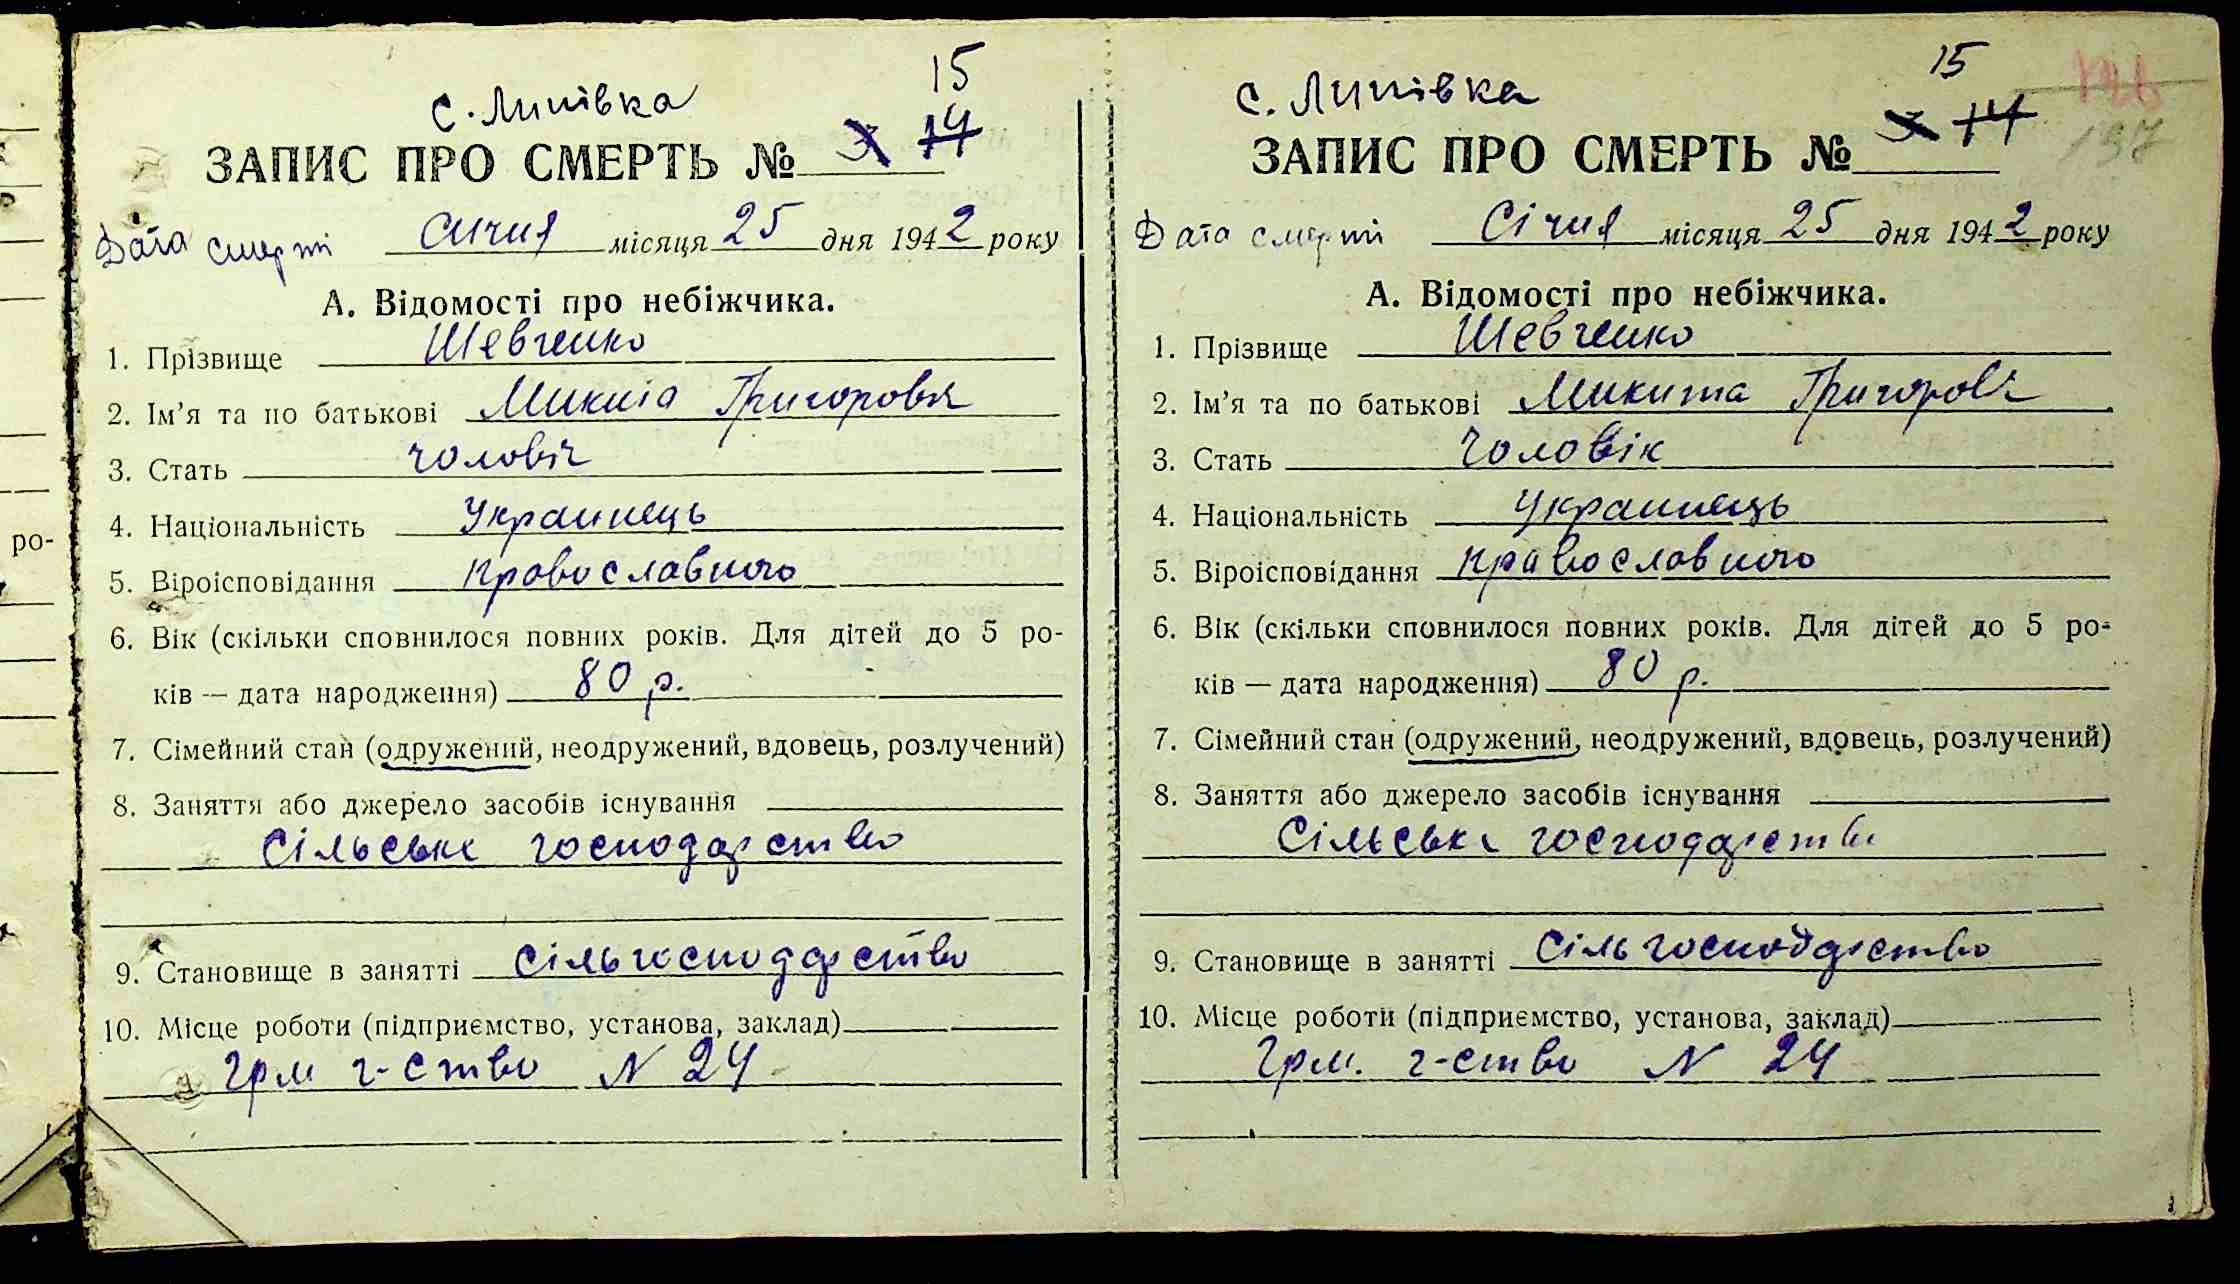 ро-
15
с. Липівка
14
ЗАПИС ПРО СМЕРТЬ №
Дата смерті сичня місяця 25 дня 1942 року
А. Відомості про небіжчика.
1. Прізвище Шевченко
2. Ім’я та по батькові Микита Григоров
3. Стать чоловіч
4. Національність Украинець
5. Віроісповідання православного
6. Вік (скільки сповнилося повних років. Для дітей до 5 ро-
ків — дата народження) 80 р.
7. Сімейний стан (одружений, неодружений, вдовець, розлучений)
8. Заняття або джерело засобів існування
Сільське господарство
9. Становище в занятті сільгосподарство
10. Місце роботи (підприємство, установа, заклад)
грм г-ство N 24
15
с. Липівка
14
137
ЗАПИС ПРО СМЕРТЬ №
Дата смерті Січня місяця 25 дня 1942 року
А. Відомості про небіжчика.
1. Прізвище Шевченко
2. Ім’я та по батькові Микита Григоров
3. Стать чоловік
4. Національність Украинець
5. Віроісповідання православного
6. Вік (скільки сповнилося повних років. Для дітей до 5 ро-
ків — дата народження) 80 р.
7. Сімейний стан (одружений, неодружений, вдовець, розлучений)
8. Заняття або джерело засобів існування
Сільське господарство
9. Становище в занятті сільгосподарство
10. Місце роботи (підприємство, установа, заклад)
Грм. г-ство N 24